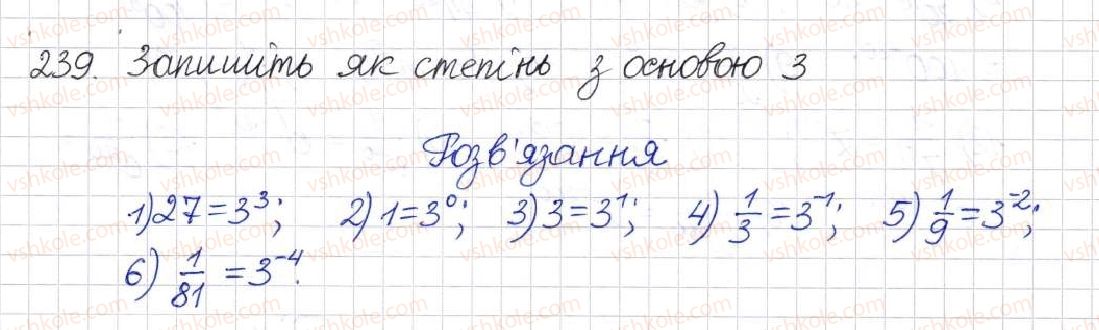 239. Запишіть як степінь з основою 3
Розв'язання
1) 27 = 3³; 2) 1 = 3⁰; 3) 3 = 3¹; 4) 1/3 = 3⁻¹; 5) 1/9 = 3⁻²;
6) 1/81 = 3⁻⁴.
vshkole.com